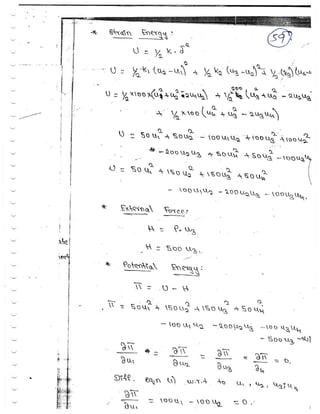 59
* Strain Energy :
U = ½ K · δ²
U = ½ k₁ (u₂ - u₁)² + ½ k₂ (u₃ - u₂)² + ½ (k₃) (u₄-
U = ½ x100x(u₁² + u₂² - 2u₁u₂) + ½ 200 (u₂² + u₃² - 2u₂u₃
+ ½ x100 (u₄² + u₃² - 2u₃u₄)
U = 50 u₁² + 50 u₂² - 100 u₁u₂ + 100 u₂² + 100 u₃²
- 200 u₂u₃ + 50 u₄² + 50 u₃² - 100 u₃u₄
U = 50 u₁² + 150 u₂² + 150 u₃² + 50 u₄²
- 100 u₁u₂ - 200 u₂u₃ - 100 u₃u₄.
* External Force:
H = P. u₃
H = 500 u₃.
* Potential Energy :
π = U - H
π = 50u₁² + 150 u₂² + 150 u₃² + 50 u₄²
- 100 u₁ u₂ - 200 u₂ u₃ - 100 u₃u₄
- 500 u₃
∂π/∂u₁ = ∂π/∂u₂ = ∂π/∂u₃ = ∂π/∂₄ = 0.
Diff. eqn (1) w.r.t to u₁, u₂, u₃, u₄
∂π/∂u₁ = 100 u₁ - 100 u₂ = 0.